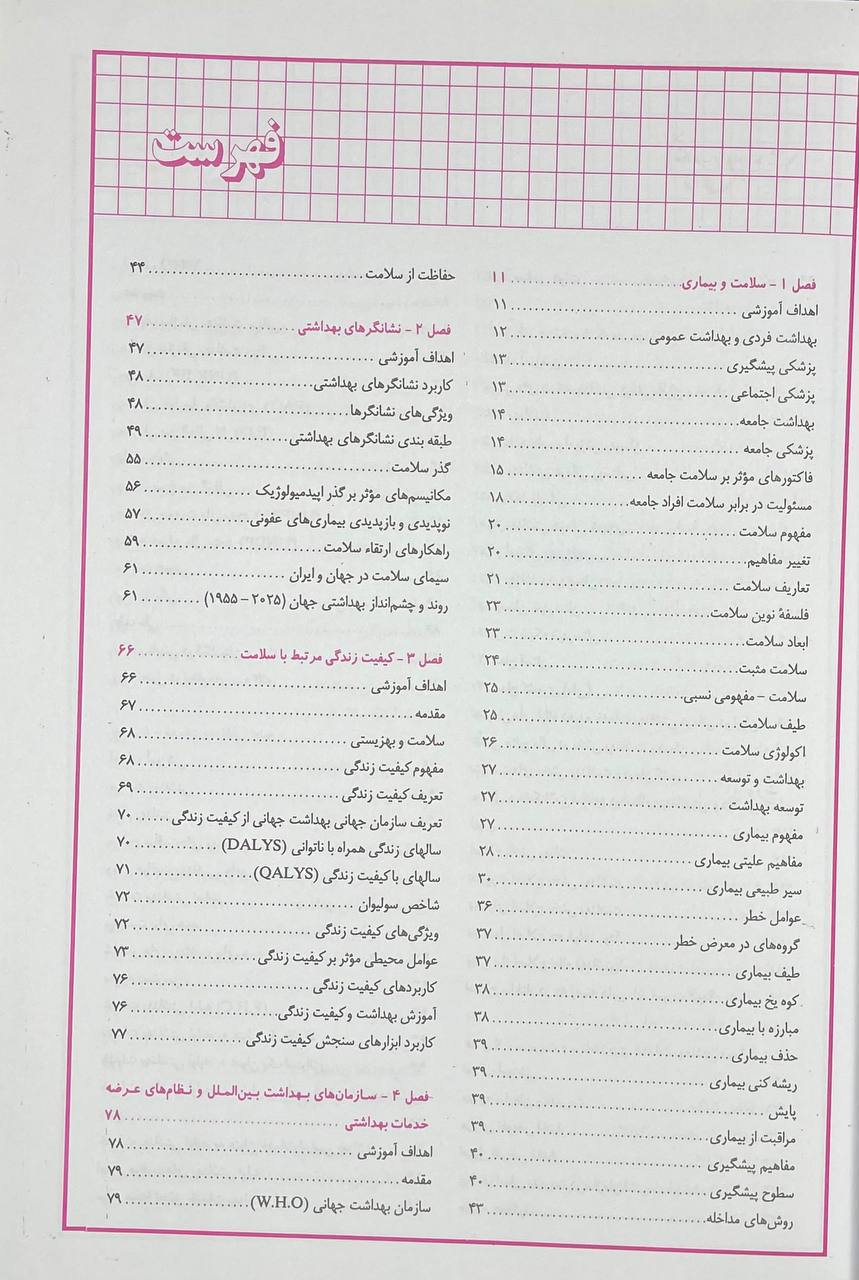 فهرست
فصل ۱ - سلامت و بیماری ........ ۱۱
اهداف آموزشی ........ ۱۱
بهداشت فردی و بهداشت عمومی ........ ۱۲
پزشکی پیشگیری ........ ۱۳
پزشکی اجتماعی ........ ۱۳
بهداشت جامعه ........ ۱۴
پزشکی جامعه ........ ۱۴
فاکتورهای مؤثر بر سلامت جامعه ........ ۱۵
مسئولیت در برابر سلامت افراد جامعه ........ ۱۸
مفهوم سلامت ........ ۲۰
تغییر مفاهیم ........ ۲۰
تعاریف سلامت ........ ۲۱
فلسفهٔ نوین سلامت ........ ۲۳
ابعاد سلامت ........ ۲۳
سلامت مثبت ........ ۲۴
سلامت - مفهومی نسبی ........ ۲۵
طیف سلامت ........ ۲۵
اکولوژی سلامت ........ ۲۶
بهداشت و توسعه ........ ۲۷
توسعه بهداشت ........ ۲۷
مفهوم بیماری ........ ۲۷
مفاهیم علیتی بیماری ........ ۲۸
سیر طبیعی بیماری ........ ۳۰
عوامل خطر ........ ۳۶
گروه‌های در معرض خطر ........ ۳۷
طیف بیماری ........ ۳۷
کوه یخ بیماری ........ ۳۸
مبارزه با بیماری ........ ۳۸
حذف بیماری ........ ۳۹
ریشه کنی بیماری ........ ۳۹
پایش ........ ۳۹
مراقبت از بیماری ........ ۳۹
مفاهیم پیشگیری ........ ۴۰
سطوح پیشگیری ........ ۴۰
روش‌های مداخله ........ ۴۳
حفاظت از سلامت ........ ۴۴
فصل ۲ - نشانگرهای بهداشتی ........ ۴۷
اهداف آموزشی ........ ۴۷
کاربرد نشانگرهای بهداشتی ........ ۴۸
ویژگی‌های نشانگرها ........ ۴۸
طبقه بندی نشانگرهای بهداشتی ........ ۴۹
گذر سلامت ........ ۵۵
مکانیسم‌های مؤثر بر گذر اپیدمیولوژیک ........ ۵۶
نوپدیدی و بازپدیدی بیماری‌های عفونی ........ ۵۷
راهکارهای ارتقاء سلامت ........ ۵۹
سیمای سلامت در جهان و ایران ........ ۶۱
روند و چشم‌انداز بهداشتی جهان (۲۰۲۵ - ۱۹۵۵) ........ ۶۱
فصل ۳ - کیفیت زندگی مرتبط با سلامت ........ ۶۶
اهداف آموزشی ........ ۶۶
مقدمه ........ ۶۷
سلامت و بهزیستی ........ ۶۸
مفهوم کیفیت زندگی ........ ۶۸
تعریف کیفیت زندگی ........ ۶۹
تعریف سازمان جهانی بهداشت جهانی از کیفیت زندگی ........ ۷۰
سالهای زندگی همراه با ناتوانی (DALYS) ........ ۷۰
سالهای با کیفیت زندگی (QALYS) ........ ۷۱
شاخص سولیوان ........ ۷۲
ویژگی‌های کیفیت زندگی ........ ۷۲
عوامل محیطی مؤثر بر کیفیت زندگی ........ ۷۳
کاربردهای کیفیت زندگی ........ ۷۶
آموزش بهداشت و کیفیت زندگی ........ ۷۶
کاربرد ابزارهای سنجش کیفیت زندگی ........ ۷۷
فصل ۴ - سازمان‌های بهداشت بین‌الملل و نظام‌های عرضه
خدمات بهداشتی ........ ۷۸
اهداف آموزشی ........ ۷۸
مقدمه ........ ۷۹
سازمان بهداشت جهانی (W.H.O) ........ ۷۹